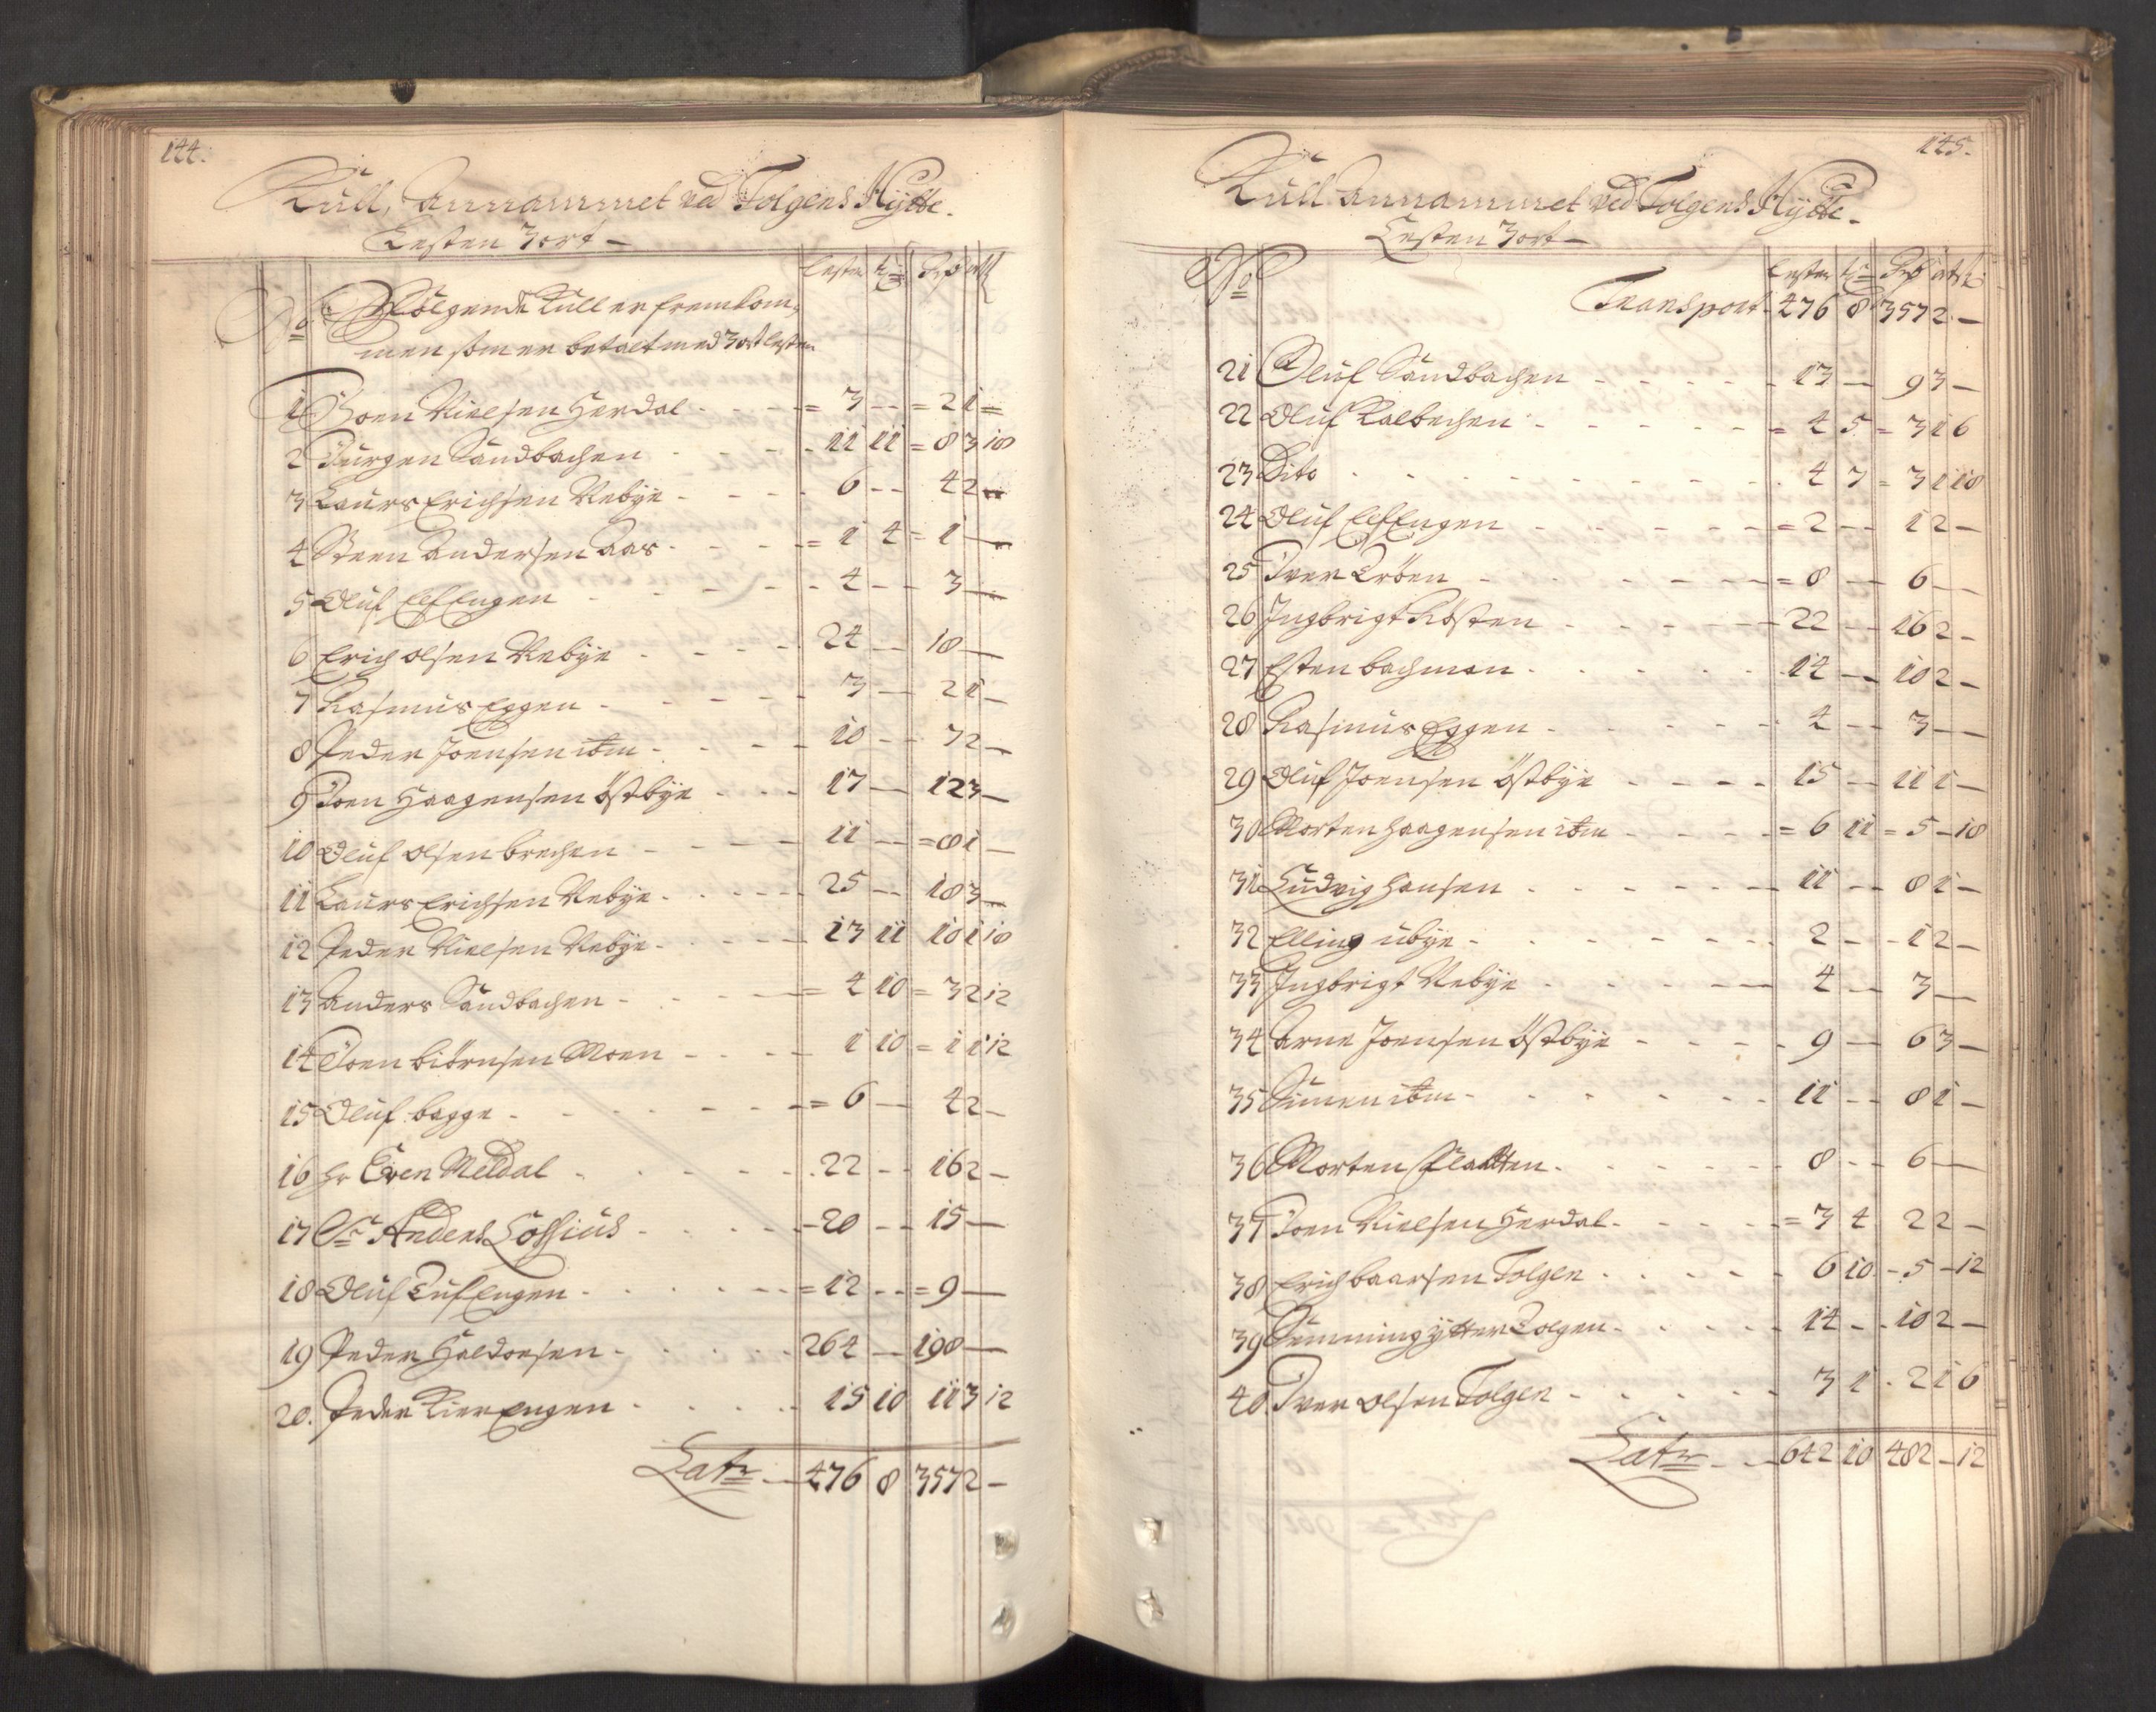 144.
Kull, Annammet ved Tolgens Hytte.
Lesten 3 ort —
Lester tr Rdr ort s
No Følgende Kull er fremkom,,
men som er betalt med 3 ort lesten
1 Joen Nielsen Herdal - - - = 3 - - = 2 1 =
2 Jürgen Sandbachen - - - - 11 11 = 8 3 18
3 Laurs Erichsen Nebye - - - - 6 - - 4 2 —
4 Steen Andersen Aas - - - = 1 4 = 1 —
5 Oluf Elf Engen - - - - 4 - - 3 —
6 Erich olsen Nebye - - - - 24 - - 18 —
7 Rasmus Eggen - - - - 3 — 2 1 —
8 Peder Joensen ibm - - - - 10 - - 7 2 —
9 Joen Haagensen Östbye - - - 17 — 12 3 —
10 Oluf olsen brechen - - - - 11 - - = 8 1 —
11 Laurs Erichsen Nebye - - - - 25 - - 18 3 —
12 Peder Nielsen Nebye - - - - 13 11 10 1 18
13 Anders Sandbachen - - - = 4 10 = 3 2 12
14 Joen biörnsen Moen - - - - 1 10 = 1 1 12
15 Oluf bagge - - - - = 6 — 4 2 —
16 Hr Eren Meldal - - - - 22 - - 16 2 —
17 Sr Anders Lossius - - - - 20 - - 15 —
18 Oluf Tuf Engen - - - = 12 - - = 9 —
19 Peder Haldorsen - - - - 264 — 198 —
20. Peder Kier Engen - - - - 15 10 11 3 12
Latr - - 476 8 357 2 —
145.
Kull Annammet ved Tolgens Hytte.
Lesten 3 ort —
No Lester tr Rdr ort s
Transport - 476 8 357 2 —
21 Oluf Sandbachen - - - - 13 — 9 3 —
22 Oluf Kalbechen - - - = 4 5 = 3 1 6
23 Dito - - - - 4 3 = 3 1 18
24 Oluf Elf Engen - - - = 2 - - 1 2 —
25 Iver Kröen - - - = 8 — 6 —
26 Ingbrigt Kösten - - - - 22 — 16 2 —
27 Esten bachmoen - - - - 14 — 10 2 —
28 Rasmus Eggen - - - - 4 - - 3 —
29 Oluf Joensen Östbye - - - - 15 — 11 1 —
30 Morten Haagensen ibm - - - = 6 11 = 5 — 18
31 Ludvig Hansen - - - - 11 - - 8 1 —
32 Elling übye - - - - 2 - - 1 2 —
33 Ingbrigt Nebye - - - - 4 — 3 —
34 Arne Joensen Östbye - - - - 9 — 6 3 —
35 Simen ibm - - - - 11 - - 8 1 —
36 Morten Flatten - - - - 8 - - 6 —
37 Joen Nielsen Herdal - - - = 3 4 2 2 —
38 Erich baarsen Tolgen - - - - 6 10 - 5 — 12
39 Semming ytter Tolgen - - - - 14 - - 10 2 —
40. Iver olsen Tolgen - - - - 3 1 - 2 1 6
Latr - - 642 10 482 — 12